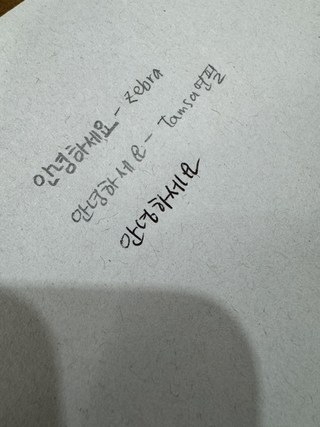 안녕하세요 - zebra
안녕하세요 - Tamsa연필
안녕하세요